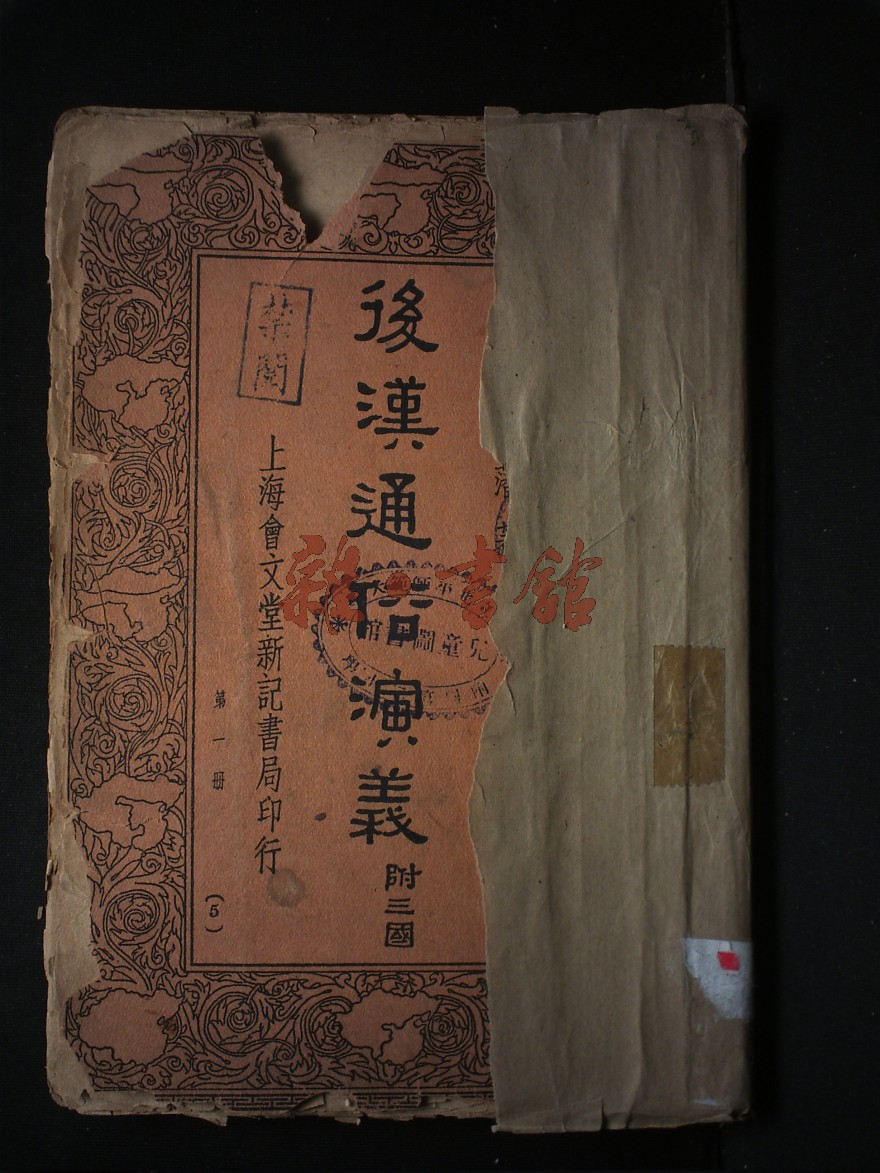 後漢通俗演義
附三國
禁閱
上海會文堂新記書局印行
第一册
(5)
雜·書館
兒童圖書館